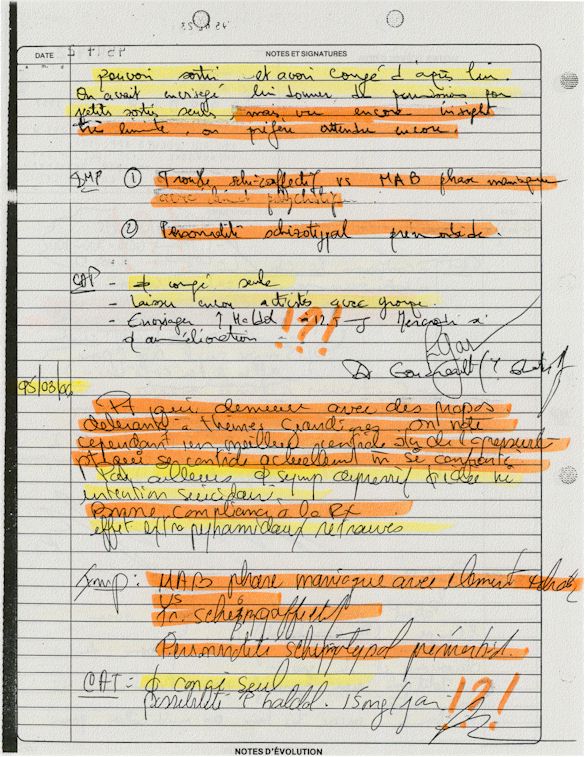 DATE NOTES ET SIGNATURES
pouvoir sortir et avoir congé d'après lui.
On avait envisagé lui donner des permissions pour
petits sorties seuls, mais vu encore insight
très limité, on préfère attendre encore.
IMP ① Trouble schizoaffectif vs MAB phase maniaque
avec
② Personnalité schizotypal prémorbide.
CAT - ∅ congé seule
- Laisser encore activités avec groupe.
- Envisager ↑ Haldol 12,5 Mercredi si
∅ amélioration !?!
Dr
95/03/06
Pt qui demeure avec des propos
délirants à thèmes grandioses on note
cependant un meilleur contrôle de l'agressivité
se contrôle actuellement
Par ailleurs, ∅ symp dépressif ∅ idée ni
intention suicidaire.
Bonne compliance à la Rx
effet extrapyramidaux retrouvés
Imp: MAB phase maniaque avec élément
vs
schizoaffectif
Personnalité schizotypal prémorbid.
CAT = ∅ congé seul
possibilité haldol. 15mg/jour !?!
NOTES D'ÉVOLUTION